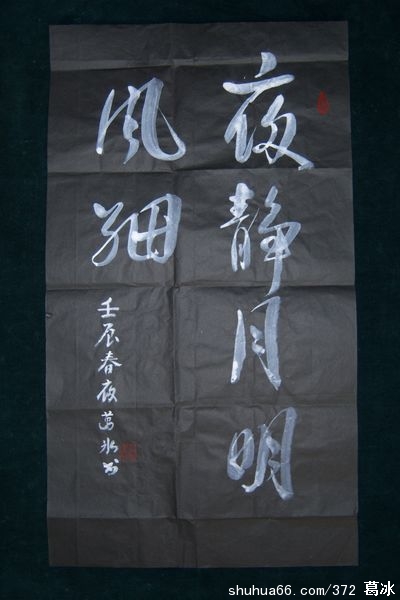 夜静月明
风细
壬辰春夜葛冰书
shuhua66.com/372 葛冰